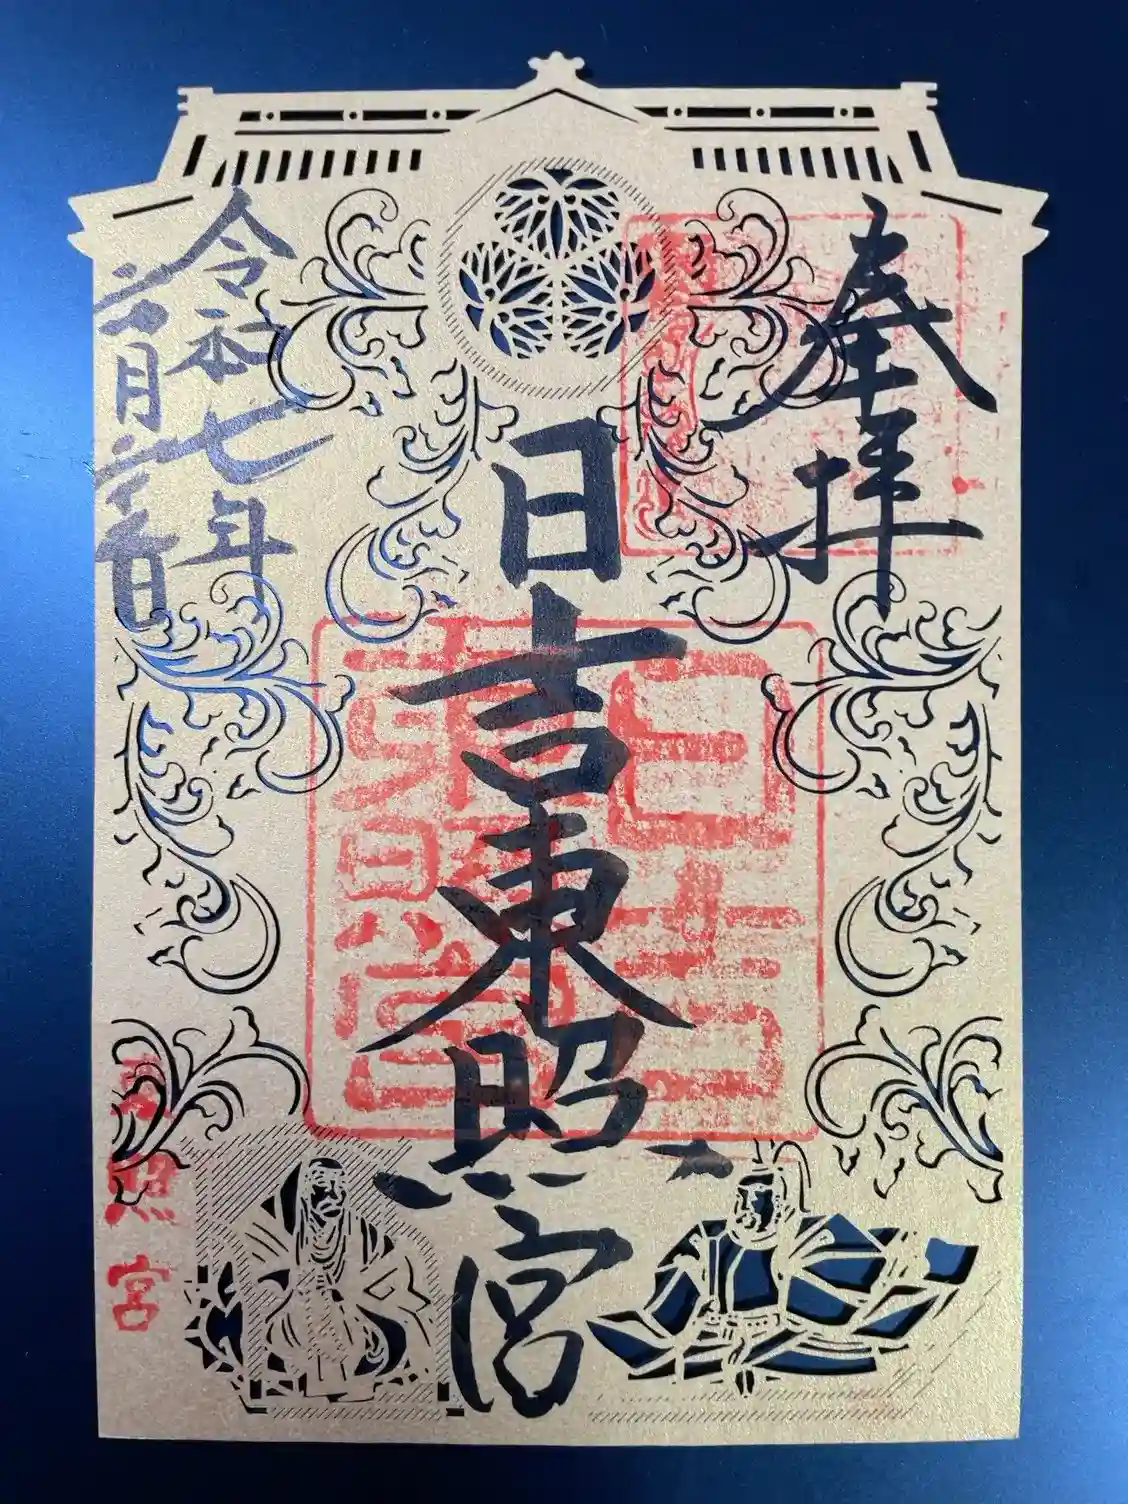 奉拝
日吉東照宮
日吉
東照宮
令和七年
六月 日
東照宮